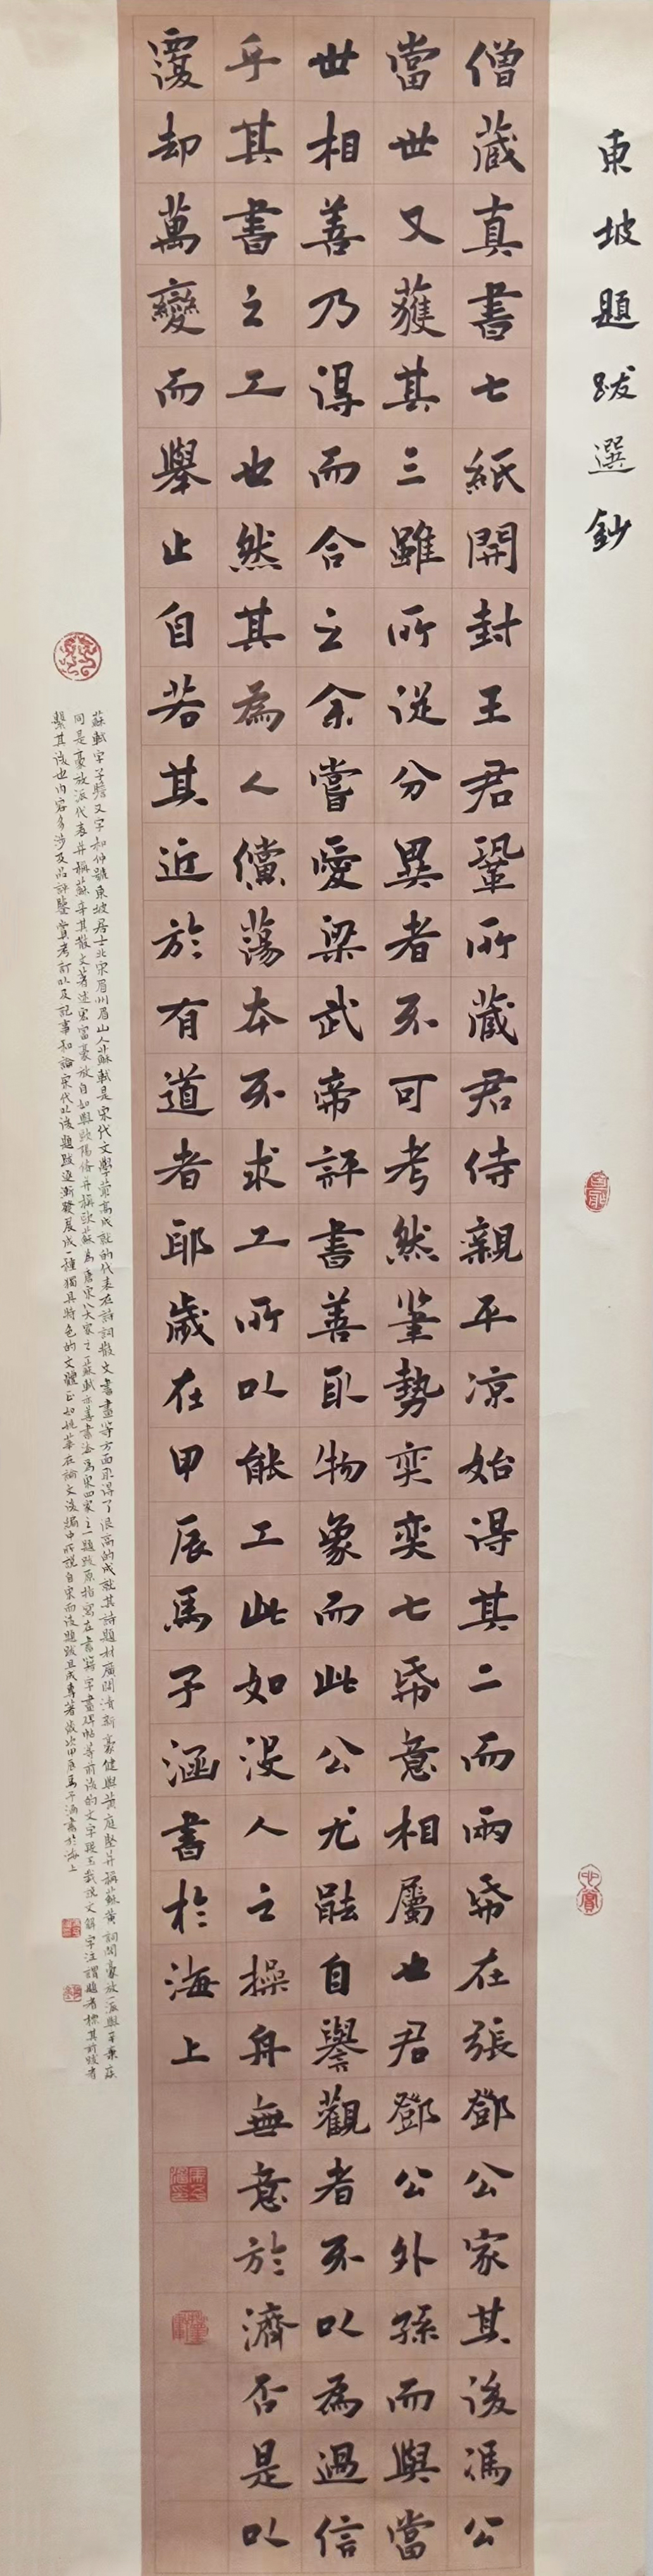 東坡題跋選鈔
僧藏真書七紙開封王君鞏所藏君侍親平涼始得其二而兩帋在張鄧公家其後馮公
當世又獲其三雖所從分異者不可考然筆勢奕奕七帋意相屬也君鄧公外孫而與當
世相善乃得而合之余嘗愛梁武帝評書善取物象而此公尤能自譽觀者不以為過信
乎其書之工也然其為人儻蕩本不求工所以能工此如沒人之操舟無意於濟否是以
覆却萬變而舉止自若其近於有道者耶歲在甲辰馬子涵書於海上
蘇軾字子瞻又字和仲號東坡居士北宋眉州眉山人蘇軾是宋代文學最高成就的代表在詩詞散文書畫等方面取得了很高的成就其詩題材廣闊清新豪健與黃庭堅并稱蘇黃詞開豪放一派與辛棄疾
同是豪放派代表并稱蘇辛其散文著述宏富豪放自如與歐陽修并稱歐蘇為唐宋八大家之一蘇軾亦善書法為宋四家之一題跋原指寫在書籍字畫碑帖等前後的文字段玉裁說文解字注謂題者標其前跋者
繫其後也內容多涉及品評鑒賞考訂以及記事和論宋代以後題跋逐漸發展成一種獨具特色的文體正如姚華在論文後編中所說自宋而後題跋且成專著歲次甲辰馬子涵書於海上